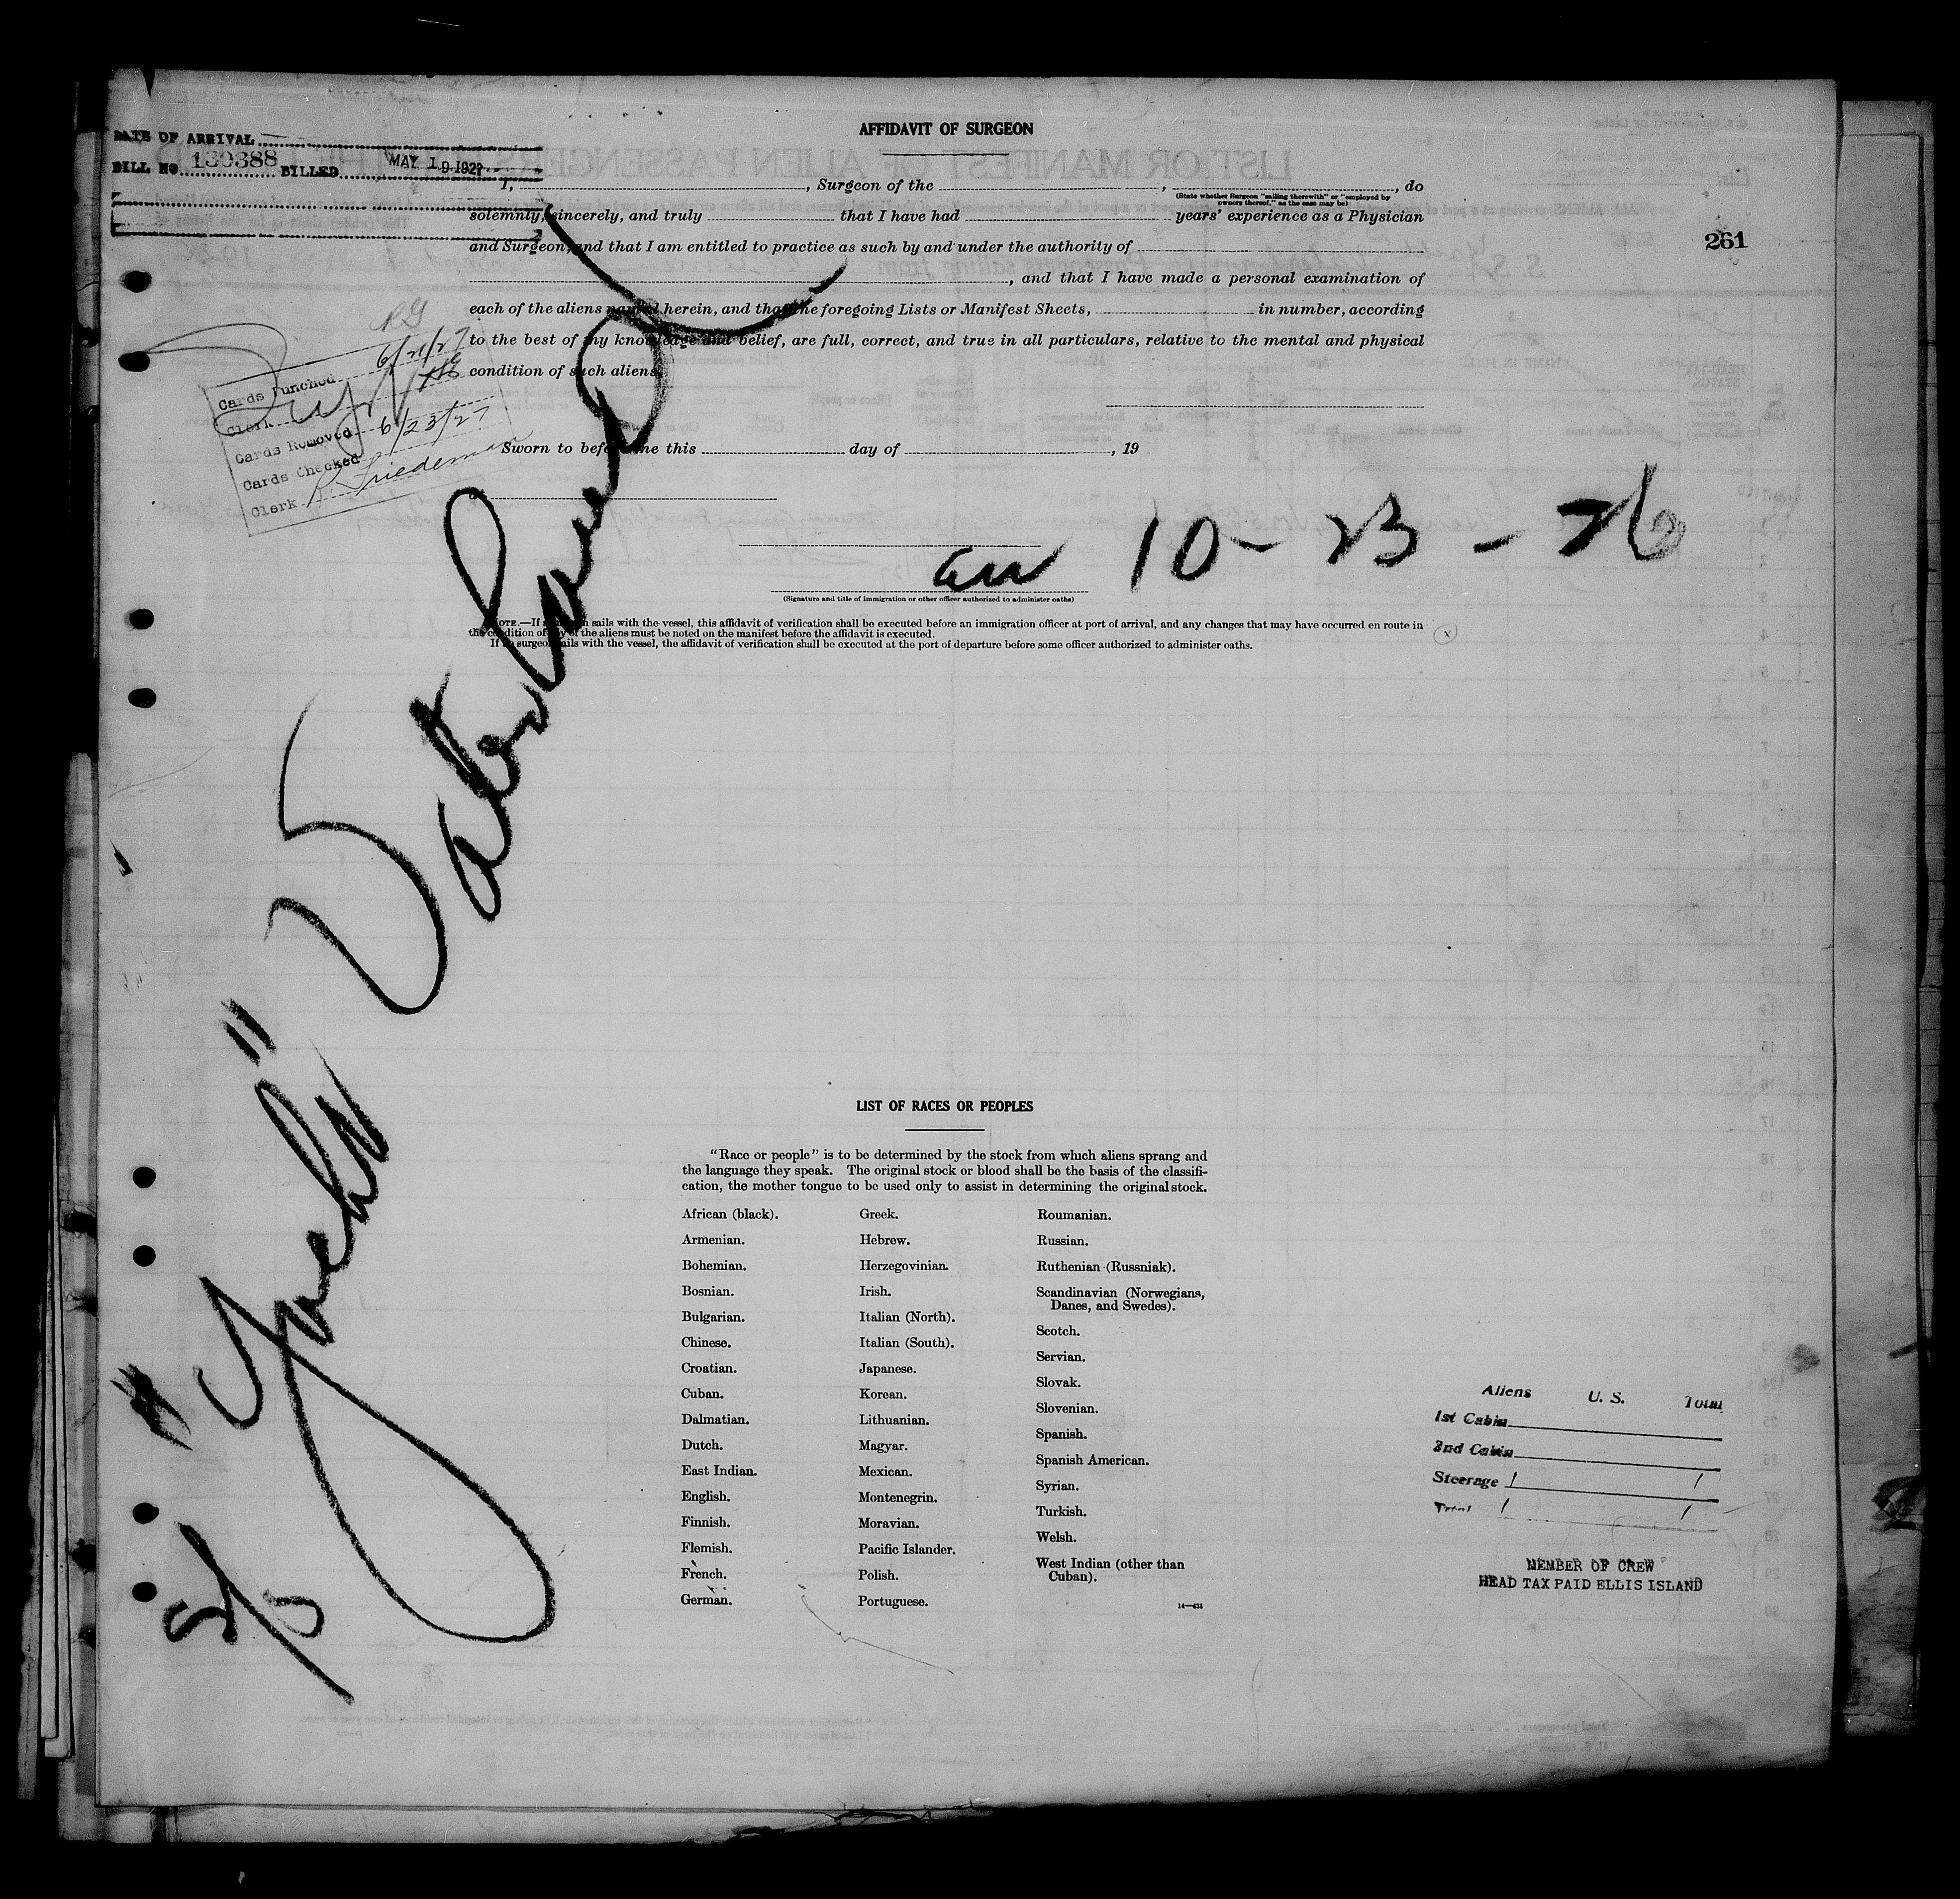 AFFIDAVIT OF SURGEON
DATE OF ARRIVAL
BILL NO. 130388 BILLED MAY 19 1927
I, , Surgeon of the , , do
(State whether Surgeon "sailing therewith" or "employed by
owners thereof," as the case may be)
solemnly, sincerely, and truly that I have had years' experience as a Physician
and Surgeon, and that I am entitled to practice as such by and under the authority of
261
, and that I have made a personal examination of
each of the aliens named herein, and that the foregoing Lists or Manifest Sheets, in number, according
to the best of my knowledge and belief, are full, correct, and true in all particulars, relative to the mental and physical
condition of such aliens.
Cards Punched 6/21/27
Clerk
Cards Removed 6/23/27
Cards Checked
Clerk R. Friedeman
Sworn to before me this day of , 19
at
arr 10 - 23 - 26
(Signature and title of immigration or other officer authorized to administer oaths)
NOTE.—If a surgeon sails with the vessel, this affidavit of verification shall be executed before an immigration officer at port of arrival, and any changes that may have occurred en route in
the condition of any of the aliens must be noted on the manifest before the affidavit is executed.
If no surgeon sails with the vessel, the affidavit of verification shall be executed at the port of departure before some officer authorized to administer oaths.
S/S "Yacht"
LIST OF RACES OR PEOPLES
"Race or people" is to be determined by the stock from which aliens sprang and
the language they speak. The original stock or blood shall be the basis of the classifi-
cation, the mother tongue to be used only to assist in determining the original stock.
African (black).
Armenian.
Bohemian.
Bosnian.
Bulgarian.
Chinese.
Croatian.
Cuban.
Dalmatian.
Dutch.
East Indian.
English.
Finnish.
Flemish.
French.
German.
Greek.
Hebrew.
Herzegovinian.
Irish.
Italian (North).
Italian (South).
Japanese.
Korean.
Lithuanian.
Magyar.
Mexican.
Montenegrin.
Moravian.
Pacific Islander.
Polish.
Portuguese.
Roumanian.
Russian.
Ruthenian (Russniak).
Scandinavian (Norwegians,
Danes, and Swedes).
Scotch.
Servian.
Slovak.
Slovenian.
Spanish.
Spanish American.
Syrian.
Turkish.
Welsh.
West Indian (other than
Cuban).
14—431
Aliens U. S. Total
1st Cabin
2nd Cabin
Steerage 1 1
Total 1 1
MEMBER OF CREW
HEAD TAX PAID ELLIS ISLAND